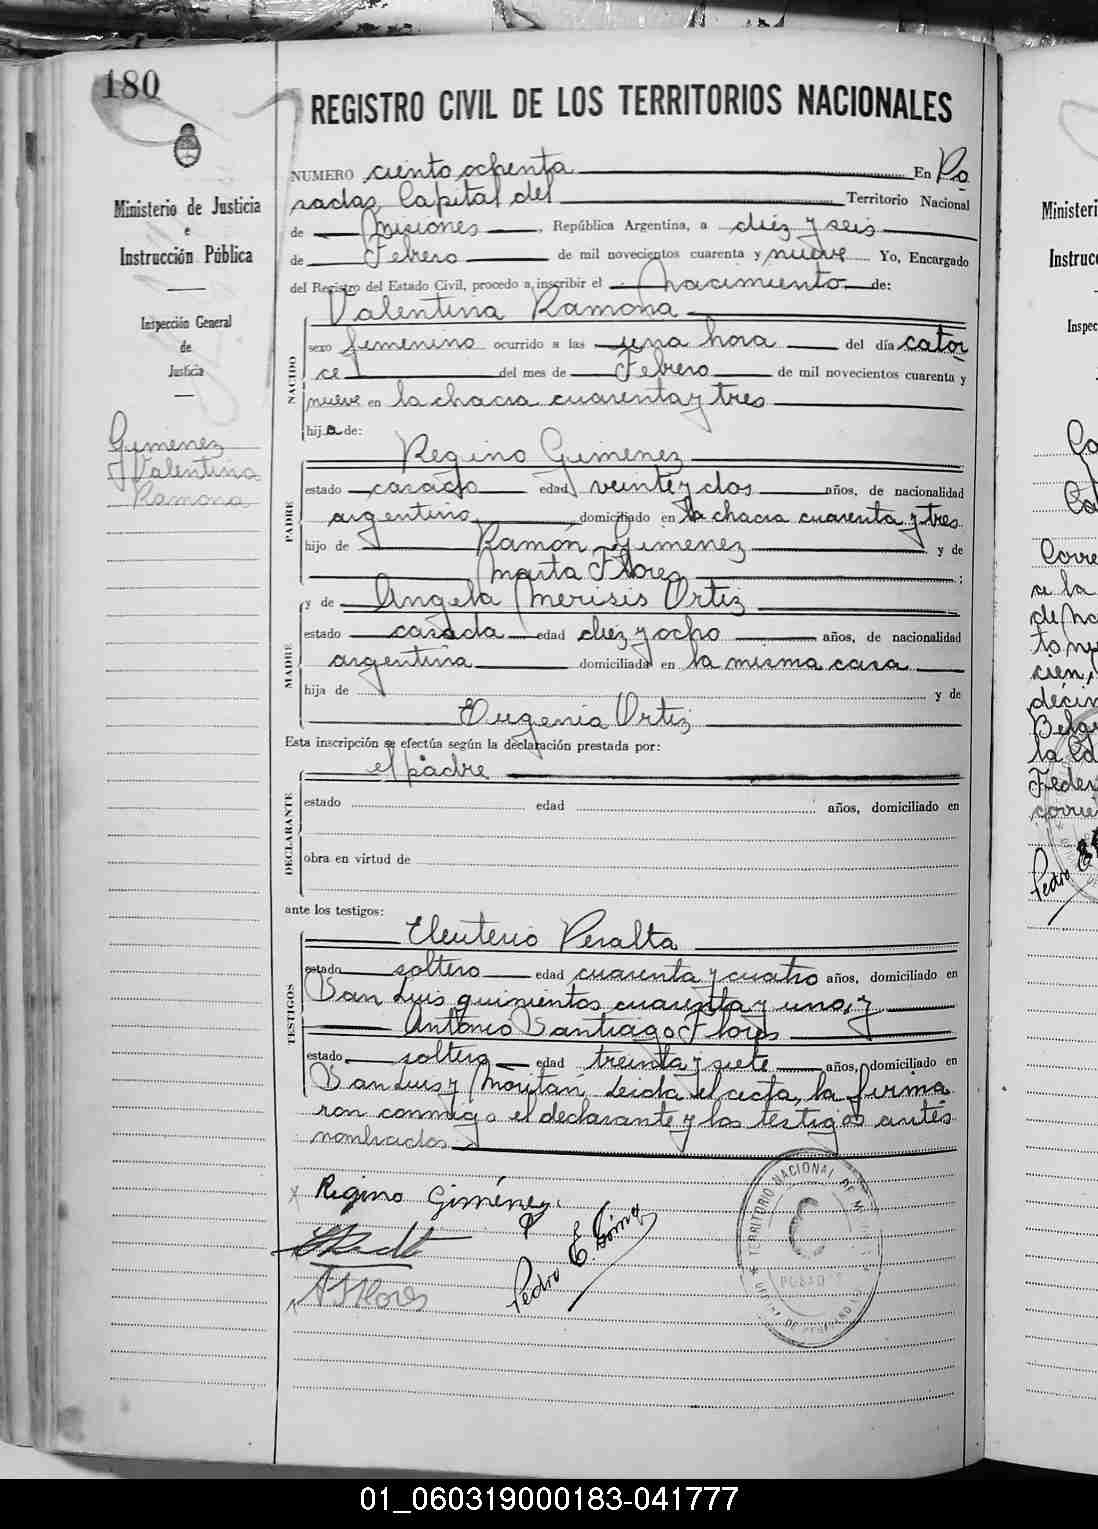 180
REGISTRO CIVIL DE LOS TERRITORIOS NACIONALES
Ministerio de Justicia
e
Instrucción Pública
Inspección General
de
Justicia
Gimenez
Valentina
Ramona
NUMERO ciento ochenta En Po
sadas Capital del Territorio Nacional
de Misiones, República Argentina, a diez y seis
de Febrero de mil novecientos cuarenta y nueve Yo, Encargado
del Registro del Estado Civil, procedo a inscribir el nacimiento de:
Valentina Ramona
NACIDO
sexo femenino ocurrido a las una hora del día cator
ce del mes de Febrero de mil novecientos cuarenta y
nueve en la chacra cuarenta y tres
hija de:
Regino Gimenez
PADRE
estado casado edad veinte y dos años, de nacionalidad
argentino domiciliado en la chacra cuarenta y tres
hijo de Ramón Gimenez y de
Marta Flores ;
y de Angela Merisis Ortiz
MADRE
estado casada edad diez y ocho años, de nacionalidad
argentina domiciliada en la misma casa
hija de y de
Eugenia Ortiz
Esta inscripción se efectúa según la declaración prestada por:
el padre
DECLARANTE
estado edad años, domiciliado en
obra en virtud de
ante los testigos:
Eleuterio Peralta
TESTIGOS
estado soltero edad cuarenta y cuatro años, domiciliado en
San Luis quinientos cuarenta y uno, y
Antonio Santiago Flores
estado soltero edad treinta y siete años, domiciliado en
San Luis y Moritán Leida el acta, la firma
ron conmigo el declarante y los testigos antes
nombrados
Regino Giménez
A S Flores
Pedro E Gómez
TERRITORIO NACIONAL DE
POSADAS
Ministeri
Instrucc
Inspec
Co
Corre
se la
to nu
cien,
décim
Belg
Feder
corrie
Pedro E
01_060319000183-041777